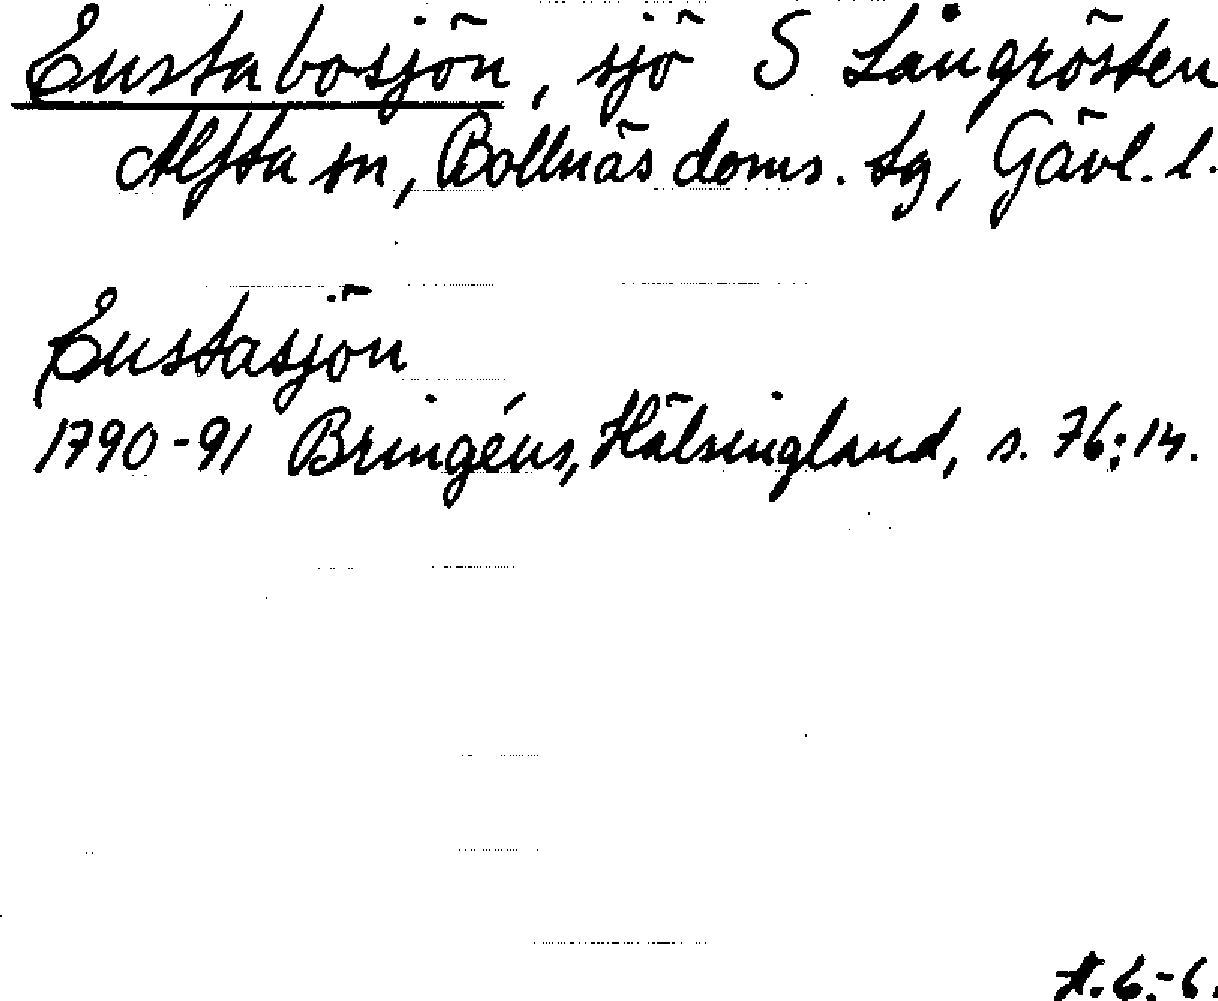 Eustabosjön, sjö S Långrösten
Alfta sn, Bollnäs doms. tg, Gävl. l.
Eustasjön
1790-91 Bringéus, Hälsingland, s. 76; 14.